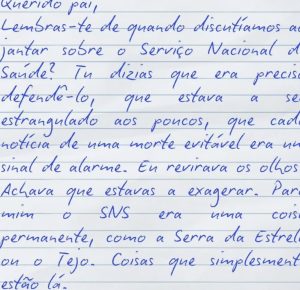 Querido pai,
Lembras-te de quando discutíamos ao
jantar sobre o Serviço Nacional d
Saúde? Tu dizias que era precis
defendê-lo, que estava a se
estrangulado aos poucos, que cad
notícia de uma morte evitável era um
sinal de alarme. Eu revirava os olhos
Achava que estavas a exagerar. Par
mim o SNS era uma cois
permanente, como a Serra da Estrel
ou o Tejo. Coisas que simplesment
estão lá.